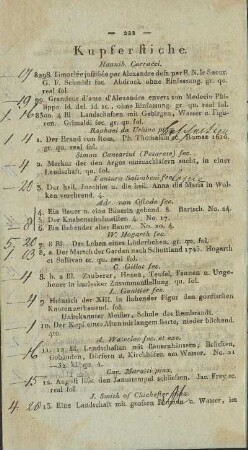 — 222 —
Kupferstiche.
Hannib. Carracci.
298. Timoclée justifiée par Alexandre dess. par R. N. le Sueur.
G. F. Schmidt sc. Abdruck ohne Einfassung. gr. qu.
real fol.
99. Grandeur d'ame d'Alexandre envers son Medecin Philippe.
id. del. id. sc., ohne Einfassung. gr. qu. real fol.
300. 4 Bl. Landschaften mit Gebirgen, Wasser u. Figuren.
Grimaldi sc. gr. qu. fol.
Raphael da Urbino
1. Der Brand von Rom. Ph. Thomassin sc. Romae 1610.
gr. qu. real fol.
Simon Cantarini (Pesarese) fec.
2. Merkur der den Argus einzuschläfern sucht, in einer
Landschaft. qu. fol.
Ventura Salimbeni
3. Der heil. Joachim u. die heil. Anna die Maria in Wolken
verehrend. 4.
Adr. van Ostade fec.
4. Ein Bauer u. eine Bäuerin gehend. 8. Bartsch. No. 24.
5. Der Knabenschulmeister. 4. No. 17.
6. Ein stehender alter Bauer. No. 20. 4.
W. Hogarth fec.
7. 8 Bl. Das Leben eines Lüderlichen. gr. qu. fol.
8. a. Der Marsch der Garden nach Schottland 1745. Hogarth
et Sullivan sc. gr. qu. real fol.
C. Gillot fec.
8. b. 2 Bl. Zauberer, Hexen, Teufel, Faunen u. Ungeheuer
in burlesker Zusammenstellung. qu. fol.
Gaultier fec.
9. Heinrich der XIII. in stehender Figur den gordischen
Knoten zerhauend. fol.
Unbekannter Meister, Schule des Rembrandt.
10. Der Kopf eines Alten mit langem Barte, nieder blickend.
4to.
A. Waterloo inv. et exc.
11. 12. Bl. Landschaften mit Bauernhäusern, Brücken,
Gebäuden, Dörfern u. Kirchhäfen am Wasser. No. 21
— 32. kl. qu. 4.
Car. Maratti pinx.
12. August läßt den Janustempel schließen. Jac. Frey sc.
real fol.
J. Smith of Chichester pinx.
13. Eine Landschaft mit großen Bäumen u. Wasser, im